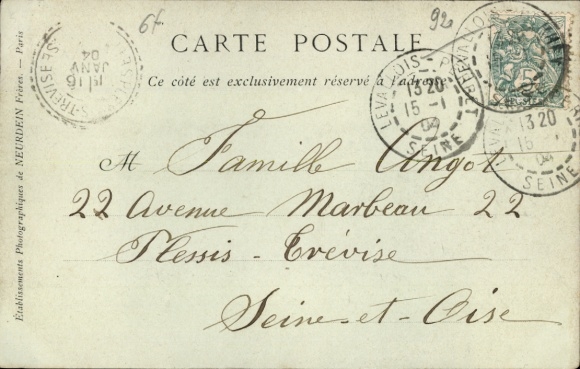 67
92
CARTE POSTALE
Ce côté est exclusivement réservé à l'adresse
M Famille Angot
22 Avenue Marbeau 22
Plessis-Trévise
Seine-et-Oise
Etablissements Photographiques de NEURDEIN Frères. — Paris
16
JANV
04
LEVALLOIS-P
13 20
15 -1
04
SEINE
13 20
15 -1
04
SEINE